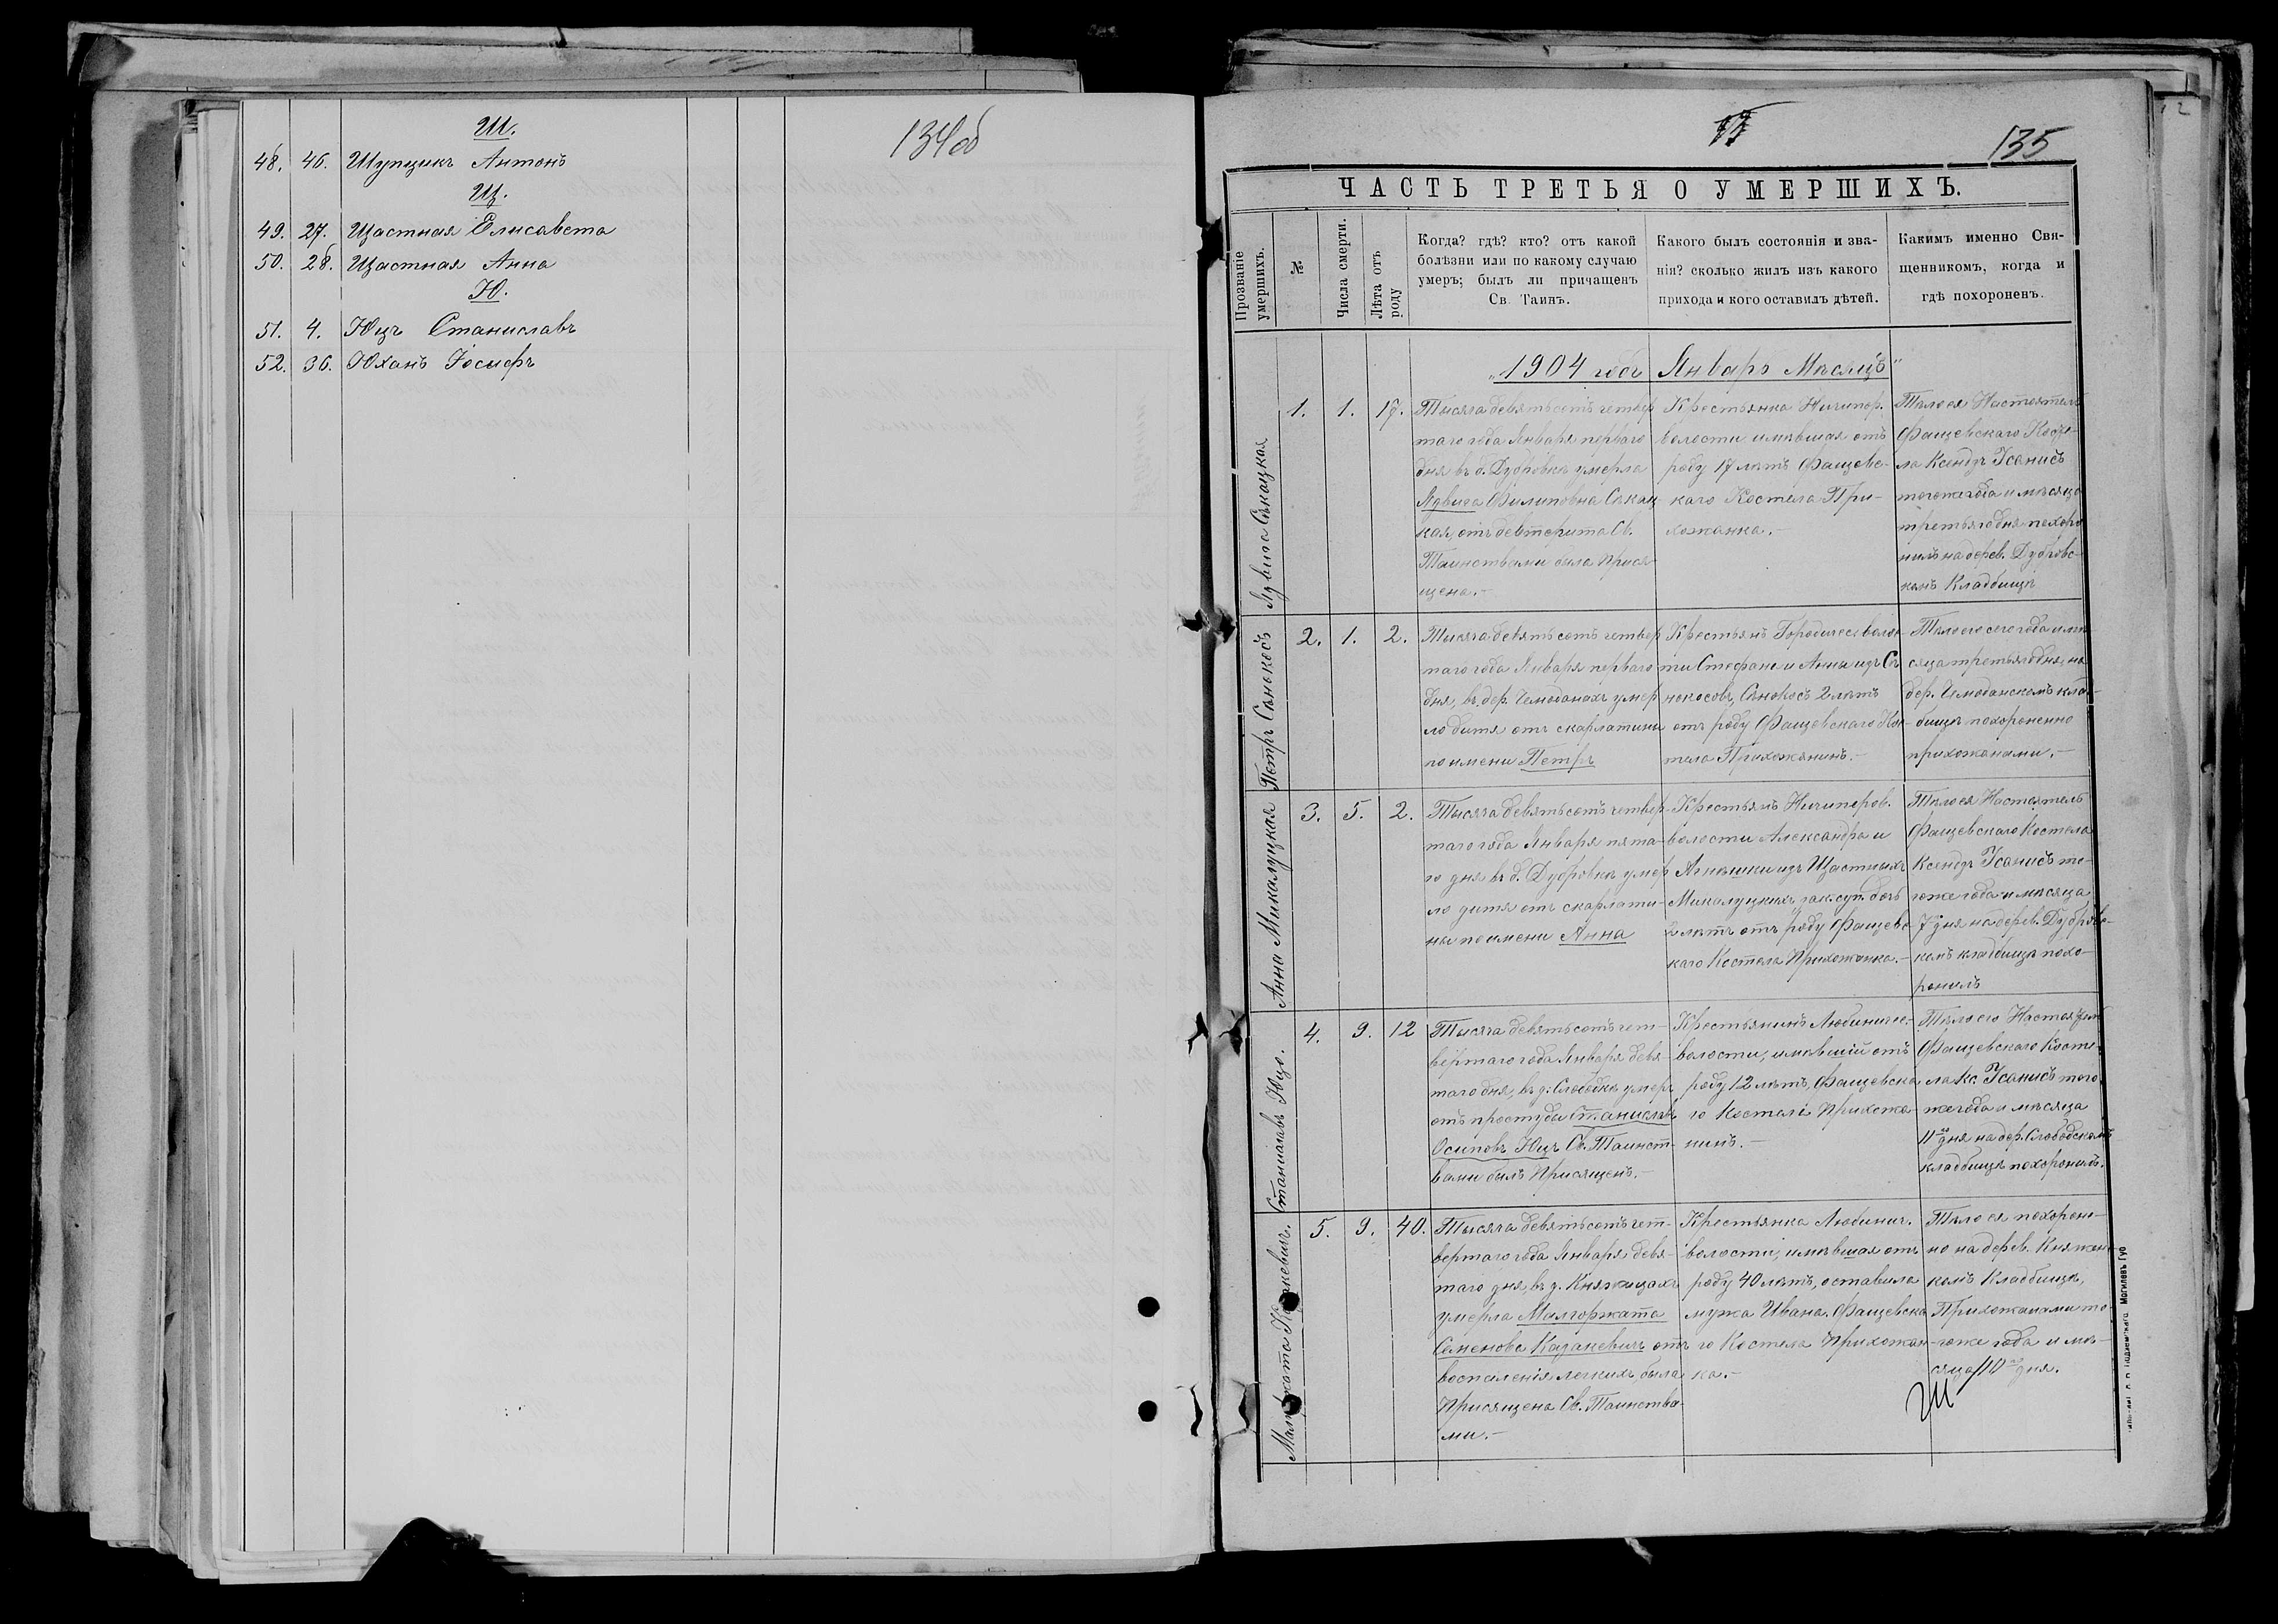 134об
Ш.
48. 46. Шупщикъ Антонъ
Щ.
49. 27. Щастная Елисавета
50. 28. Щастная Анна
Ю.
51. 4. Юцъ Станиславъ
52. 36. Юханъ Іосифъ
135
ЧАСТЬ ТРЕТЬЯ О УМЕРШИХЪ.
Прозваніе умершихъ.
№
Числа смерти.
Лѣта отъ роду
Когда? гдѣ? кто? отъ какой
болѣзни или по какому случаю
умеръ; былъ ли причащенъ
Св. Таинъ.
Какого былъ состоянія и зва-
нія? сколько жилъ изъ какого
прихода и кого оставилъ дѣтей.
Какимъ именно Свя-
щенникомъ, когда и
гдѣ похороненъ.
„1904 года Январь Мѣсяцъ“
Ядвига Сѣкацкая
1. 1. 17.
Тысяча девятьсотъ четвер
таго года Января перваго
дня въ д. Дубровкѣ умерла
Ядвига Филиповна Секац
кая, отъ дефтерита Св.
Таинствами была Прися
щена.-
Крестьянка Ничипор.
волости имѣвшая отъ
роду 17 лѣтъ Фащевс-
каго Костела При-
хожанка.-
Тѣло ея Настоятель
Фащевскаго Косте-
ла Ксендзъ Усанисъ
тогоже года и мѣсяца
третьяго дня похоро
нилъ на дерев. Дубровс-
комъ Кладбищѣ
Петръ Сѣнокосъ
2. 1. 2.
Тысяча девятьсотъ четвер
таго года Января перваго
дня, въ дер. Чемоданахъ умер
ло дитя отъ скарлатины
по имени Петръ
Крестьянъ Городищес. волос
ти Стефана и Анны изъ
нокосовъ, 2 лѣтъ
отъ роду Фащевскаго Кос-
тела Прихожанинъ.-
Тѣло его сего года и мѣ
сяца третьяго дня, на
дер. Чемоданскомъ клад-
бищѣ похороненно
прихожанами.-
Анна Микалуцкая
3. 5. 2.
Тысяча девятьсотъ четвер-
таго года Января пята-
го дня въ д. Дубровкѣ умер
ло дитя отъ скарлати-
ны по имени Анна
Крестьянъ Ничипоров.
волости Александра и
Агнѣшки изъ Щастныхъ
Микалуцкихъ, зак. суп. дочь
2 лѣтъ отъ роду Фащевс
каго Костела Прихожанка.-
Тѣло ея Настоятель
Фащевскаго Костела
Ксендзъ Усанисъ то-
гоже года и мѣсяца
7 дня на дерев. Дубровс-
комъ кладбищѣ похо-
ронилъ
Станиславъ Юцъ.
4. 9. 12
Тысяча девятьсотъ чет-
вертаго года Января девя-
таго дня, въ д. Слободкѣ умеръ
отъ простуды Станиславъ
Осиповъ Юцъ Св. Таинст-
вами былъ Присященъ.-
Крестьянинъ Любинич.
волости, имѣвшій отъ
роду 12 лѣтъ, Фащевска
го Костела Прихожа-
нинъ.-
Тѣло его Настоятель
Фащевскаго Косте-
ла Кс. Усанисъ того
же года и мѣсяца
11го дня на дер. Слободскомъ
кладбищѣ похоронилъ.
5. 9. 40.
Тысяча девятьсотъ чет-
вертаго года Января девя-
таго дня, въ д. Княжицахъ
умерла Малгоржата
Семенова Казакевичъ отъ
воспаленія легкихъ, была
Присящена Св. Таинства-
ми.-
Крестьянка Любинич.
волости, имѣвшая отъ
роду 40 лѣтъ, оставила
мужа Ивана. Фащевска
го Костела Прихожан-
ка.-
Тѣло ея похорон-
но на дерев. Княжиц
комъ Кладбищѣ,
Прихожанами то-
гоже года и мѣ-
сяца 10го дня.